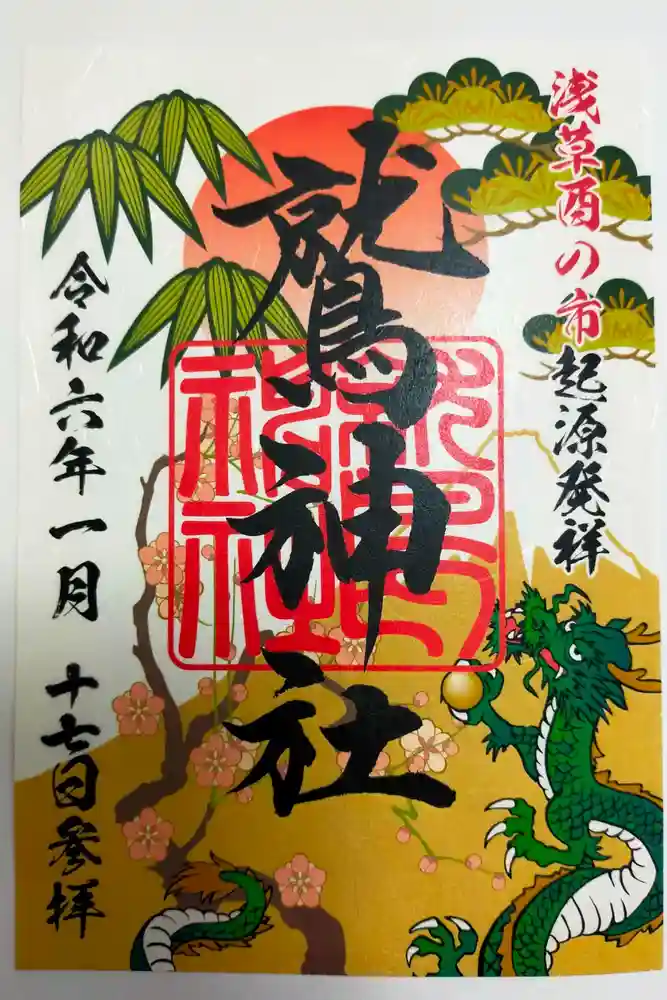 浅草酉の市起源発祥
鷲神社
令和六年一月十七日参拝